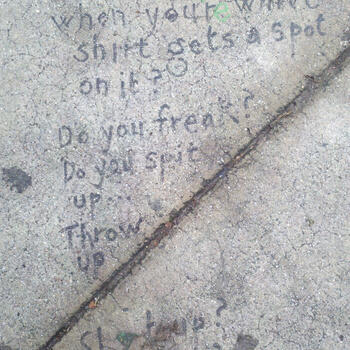 when your white
shirt gets a spot
on it?
Do you freak?
Do you spit
up...
Throw
up
Shut up?